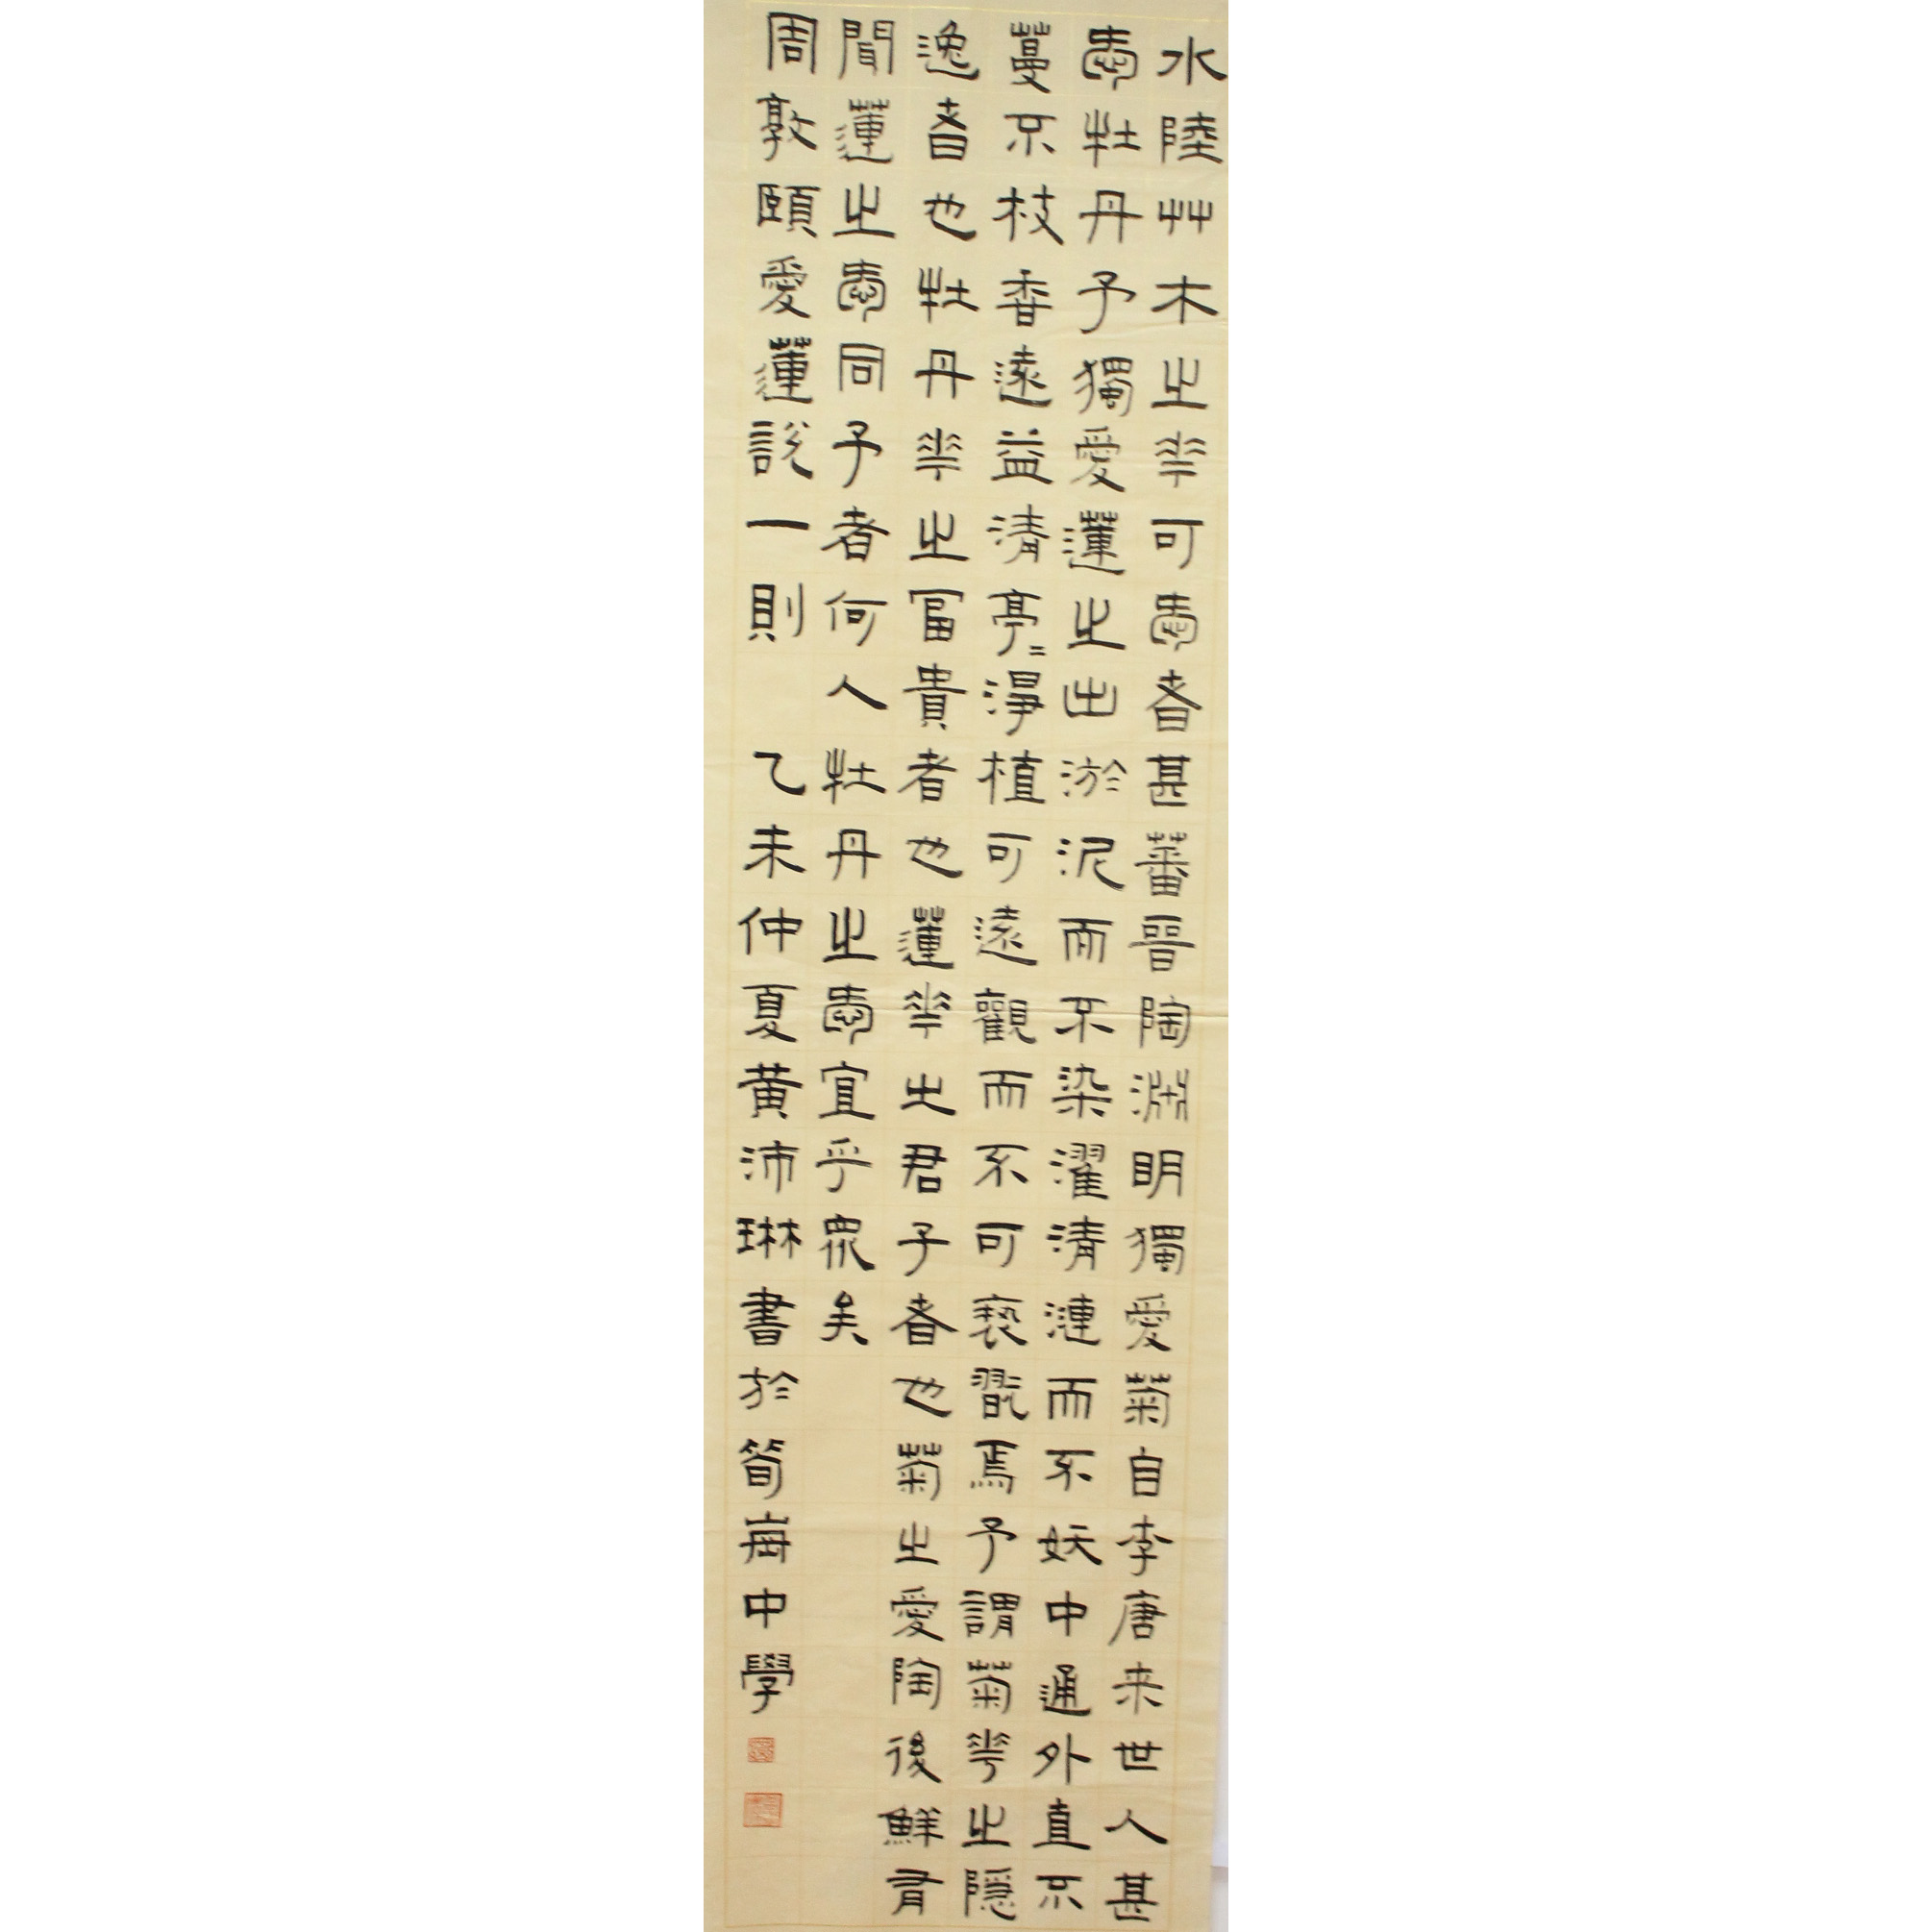 水陸艸木之華可愛者甚蕃晉陶渊明獨愛菊自李唐来世人甚
愛牡丹予獨愛蓮之出淤泥而不染濯清漣而不妖中通外直不
蔓不枝香遠益清亭〻淨植可遠觀而不可褻翫焉予謂菊華之隱
逸者也牡丹華之富貴者也蓮華之君子者也菊之愛陶後鮮有
聞蓮之愛同予者何人牡丹之愛宜乎眾矣
周敦頤愛蓮說一則 乙未仲夏黃沛琳書於筍崗中學